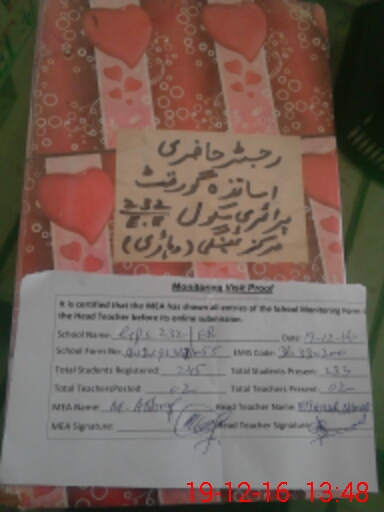 رجسٹر حاضری
اساتذہ گورنمنٹ
پرائمری سکول 232/E.B
مرکز (وہاڑی)
Monitoring Visit Proof
It is certified that the MEA has shown all entries of the School Monitoring Form
the Head Teacher before its online submission.
School Name: GPS 232/EB Date: 19-12-16
School Form No: EMIS Code:
Total Students Registered: 245 Total Students Present:
Total Teachers Posted: 02 Total Teachers Present: 02
MEA Name: M. Head Teacher Name:
MEA Signature: Head Teacher Signature:
19-12-16 13:48